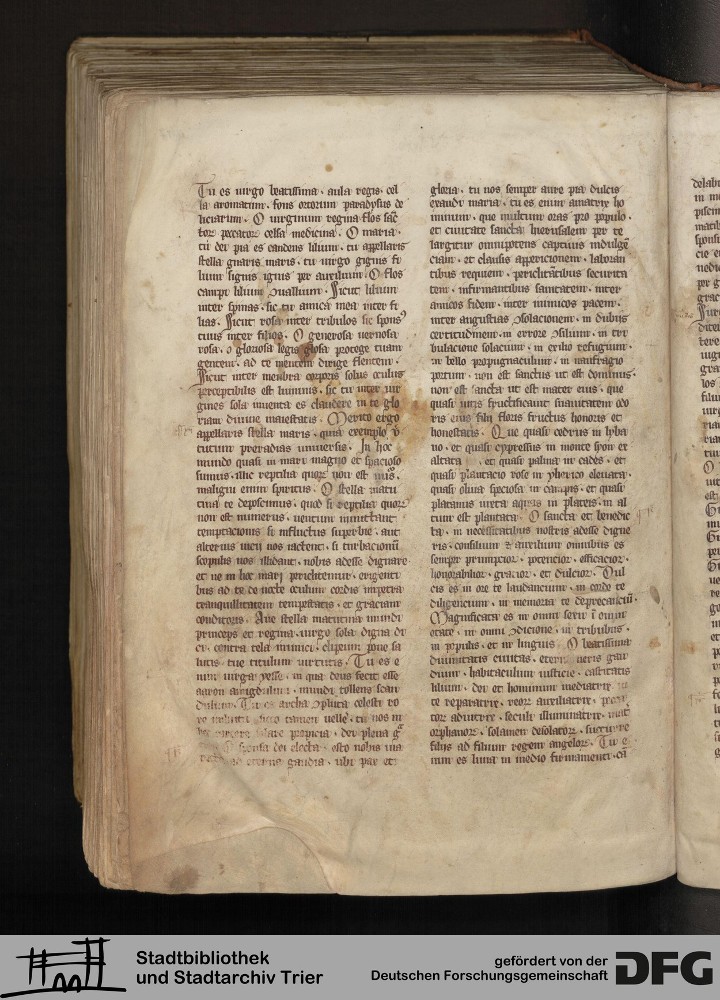 Tu es uirgo beatissima . aula regis . cel
la aromatum . fons ortorum paradysus de
liciarum . O uirginum regina flos
peccator celsa medicina . O maria .
tu dei pia es candens lilium . tu appellaris
stella maris . tu uirgo gignis fi
lium ignis per auxilium . O flos
campi lilium ɔuallium . Sicut lilium
inter spinas . sic tu amica mea inter fi
lias . Sicut rosa inter tribulos sic spons
tuus inter filios . O generosa uernosa
rosa . o gloriosa legis glosa protege tuam
gentem . ad te mentem dirige flentem .
Sicut inter menbra corporis solus oculus
perceptibilis est luminis . sic tu inter uir
gines sola inuenta es claudere in te glo
riam diuine maiestatis . Merito ergo
appellaris stella maris . quia exemplo
tutum preradias uniuersis . In hoc
mundo quasi in mari magno et spacioso
sumus . illic reptilia quor non est
maligni enim spiritus . O stella matu
tina te deposcimus . quod si reptilia quor
non est numerus . uentum inmittant
temptacionis si influctus superbie . aut
alterius uicij nos iactent . si turbacionum
scopulis nos illidant . nobis adesse dignare
et ne in hoc mari periclitemur . erigenti
bus ad te de nocte oculum cordis impetra
tranquillitatem tempestatis . et graciam
conditoris . Aue stella matutina mundi
princeps et regina . uirgo sola digna di
ci . contra tela inimici . clipeum pone sa
lutis tue titulum uirtutis . Tu es e
nim uirga yesse . in qua deus fecit esse
aaron amigdalum . mundi tollens scan
dalum . Tu es archa ɔpluta celesti ro
re tamen uelle . tu nos in
propicia . dei plena
sponsa dei electa . esto nobis uia
ad eterna gaudia . ubi pax et
gloria . tu nos semper aure pia dulcis
exaudi maria . tu es enim amatrix ho
minum . que multum oras pro populo .
et ciuitate sancta iherusalem per te
largitur omnipotens captiuis indulgen
ciam . et clausis appericionem . laboran
tibus requiem . periclitantibus securita
tem . infirmantibus sanitatem . inter
amicos fidem . inter inimicos pacem .
inter augustias ɔsolacionem . in dubiis
certitudinem . in errore ɔsilium . in tri
bulacione solacium . in exilio refugium .
in bello propugnaculum . in naufragio
portum . non est sanctus ut est dominus .
non est sancta ut est mater eius . que
quasi uitis fructificauit suauitatem odo
ris eius filii floris fructus honoris et
honestatis . Que quasi cedrus in lyba
no . et quasi cypressus in monte syon ex
altata . et quasi palma in cades . et
quasi plantacio rose in yherico eleuata .
quasi oliua speciosa in campis . et quasi
platanus iuxta aquas in plateis . in al
tum est plantata . O sancta et benedic
ta . in necessitatibus nostris adesse digne
ris . consilium et auxilium omnibus es
semper promptior . potencior . efficacior .
honorabilior . gracior . et dulcior . Dul
cis es in ore te laudancium . in corde te
diligencium . in memoria te deprecancium .
Magnificata es in omni sexu in omni
etate . in omni ɔdicione . in tribubus .
in populis . et in linguis . O beatissima
diuinitatis ciuitas . gau
dium . habitaculum iusticie . castitatis
lilium . dei et hominum mediatrix
te reparatrix . reor auxiliatrix .
tor adiutrix . seculi illuminatrix . mater
orphanor . solamen desolator . succurre
filiis ad filium regem angelor . Tu e
nim es luna in medio firmamenti .
Stadtbibliothek
und Stadtarchiv Trier
gefördert von der
Deutschen Forschungsgemeinschaft
DFG